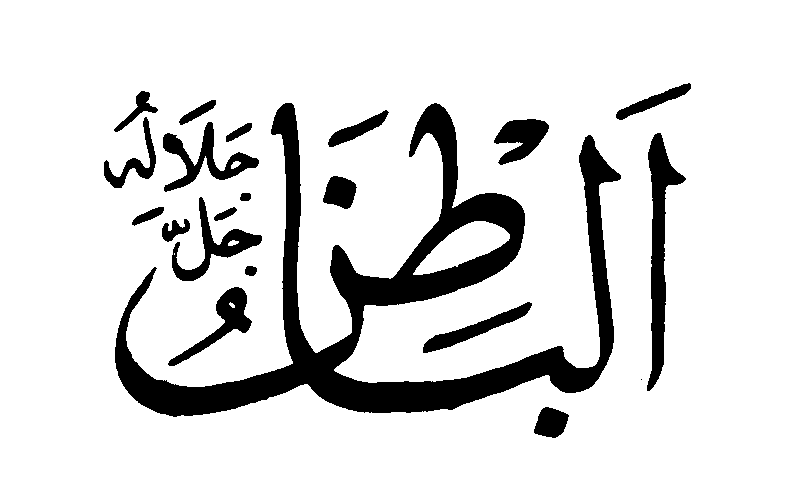 اَلْبَاطِنُ
جَلَّ
جَلَالُهُ